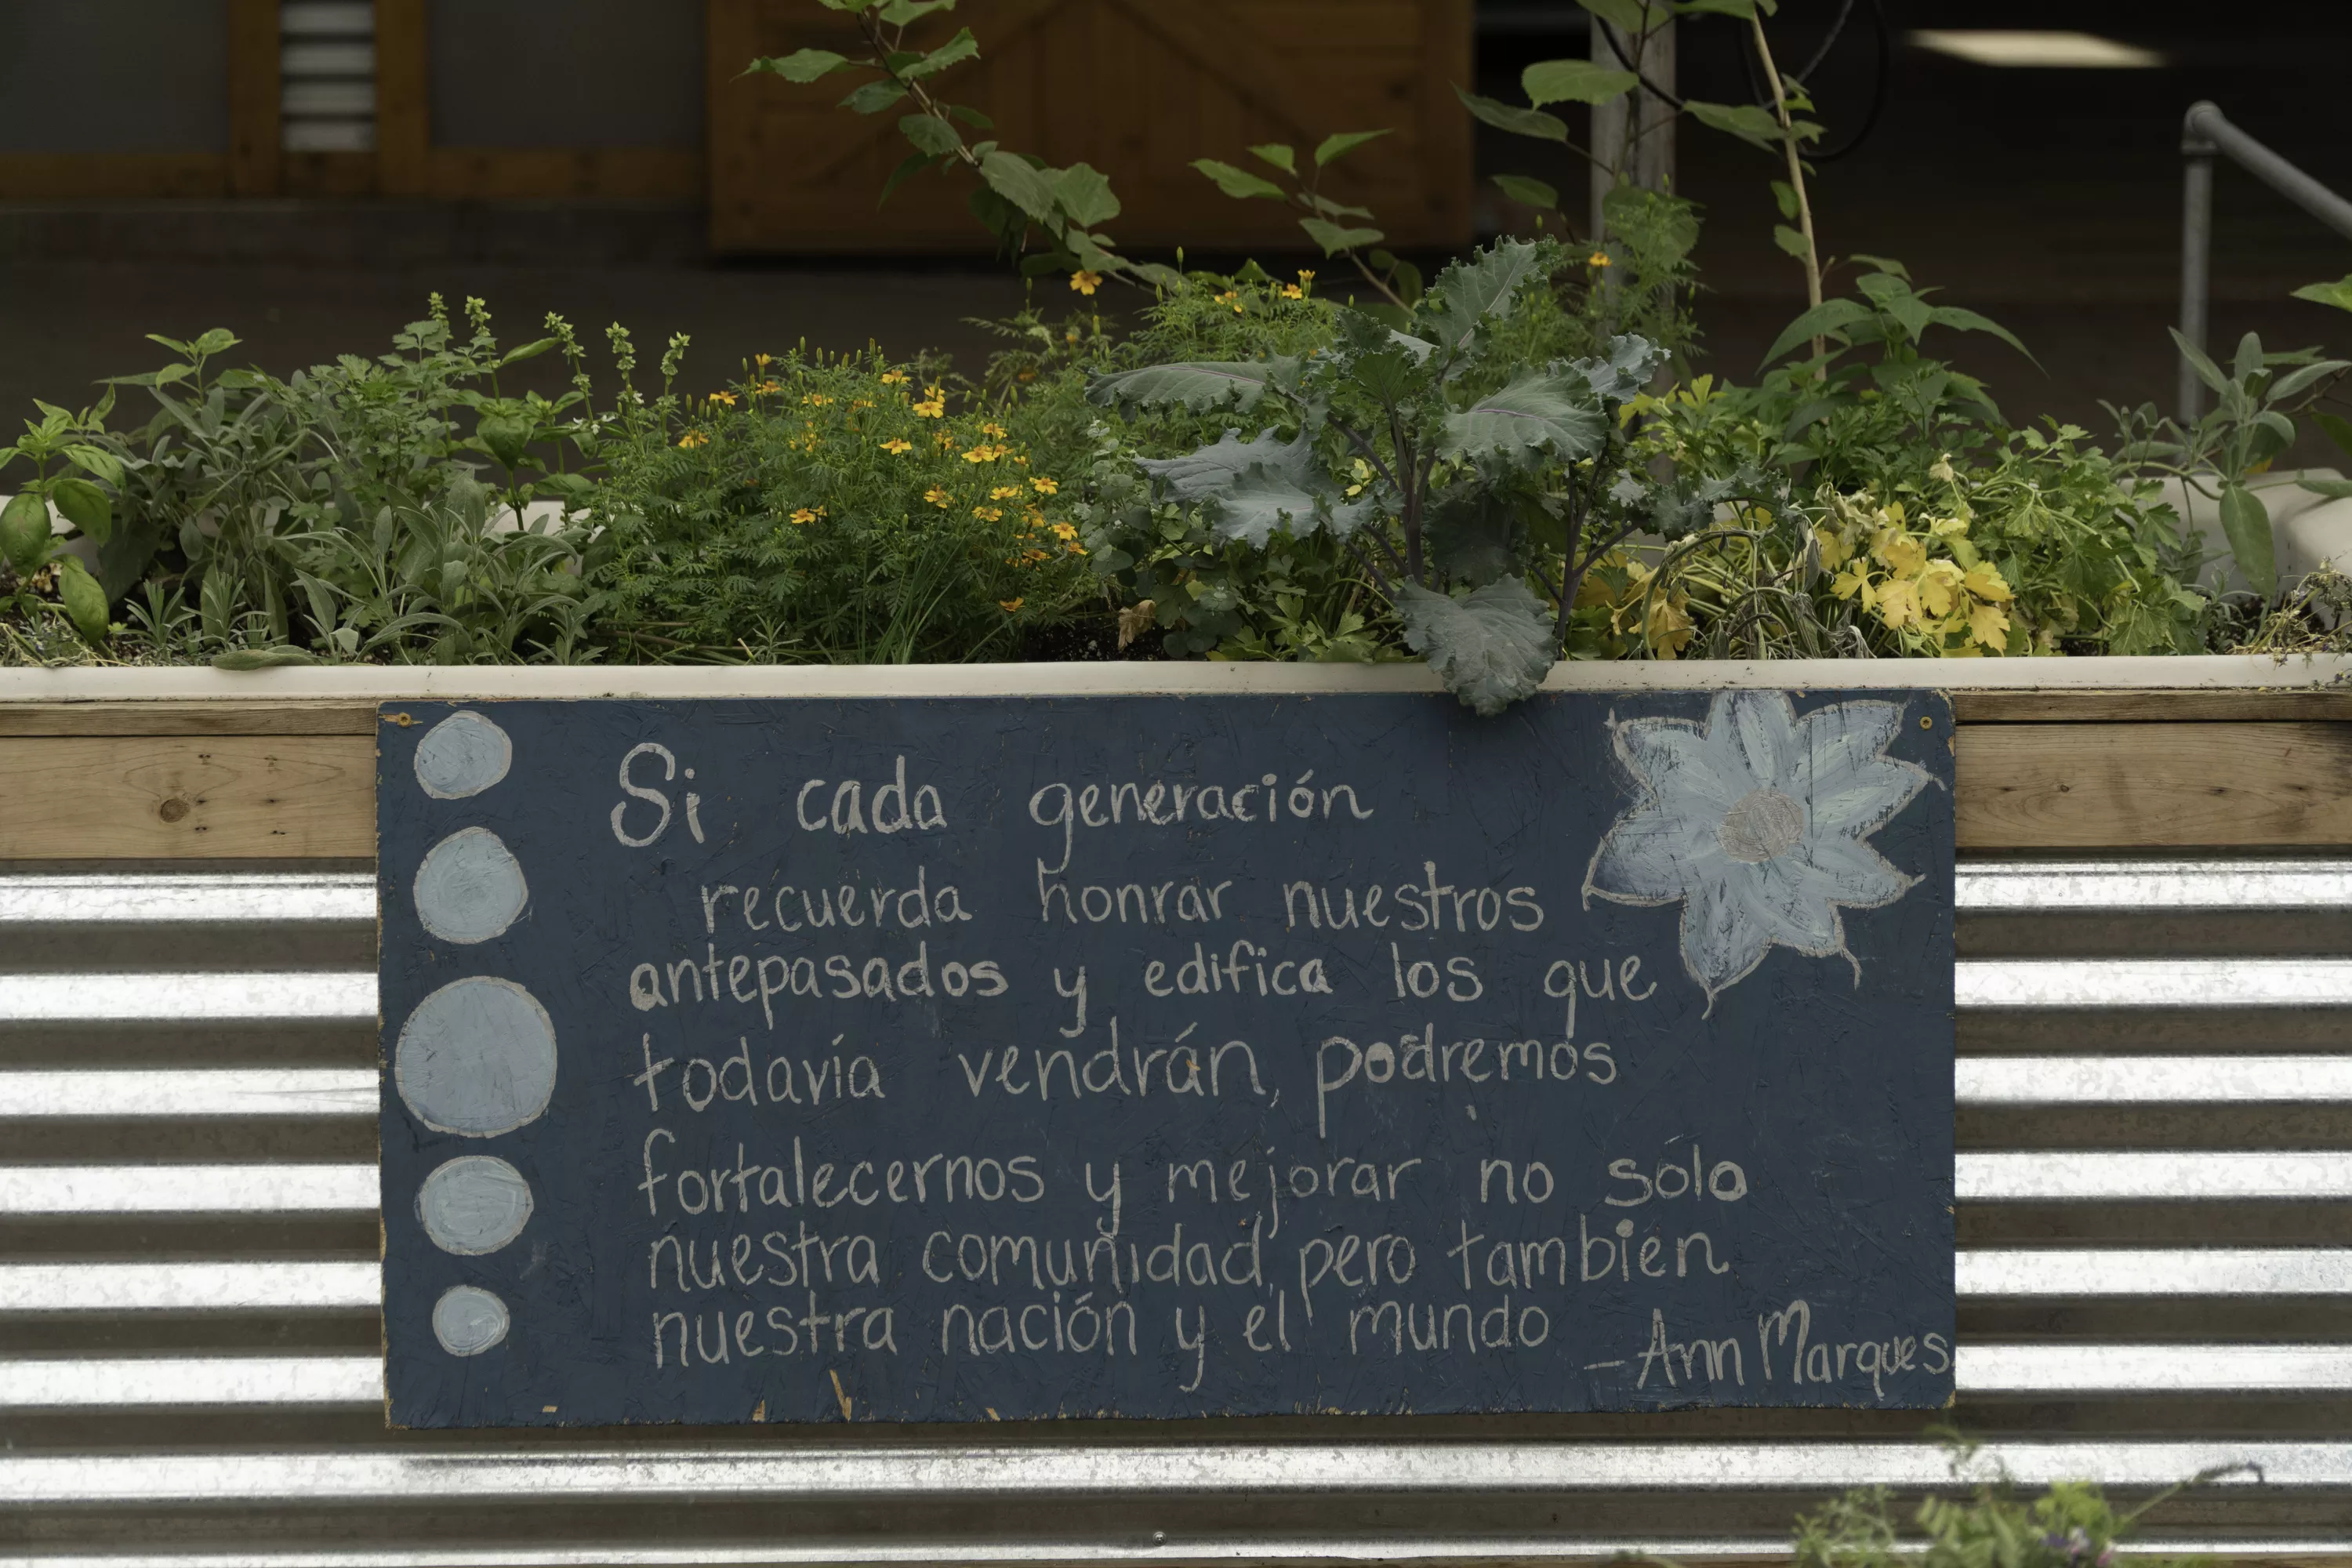 Si cada generación
recuerda honrar nuestros
antepasados y edifica los que
todavía vendrán, podremos
fortalecernos y mejorar no sólo
nuestra comunidad, pero también
nuestra nación y el mundo
- Ann Marques